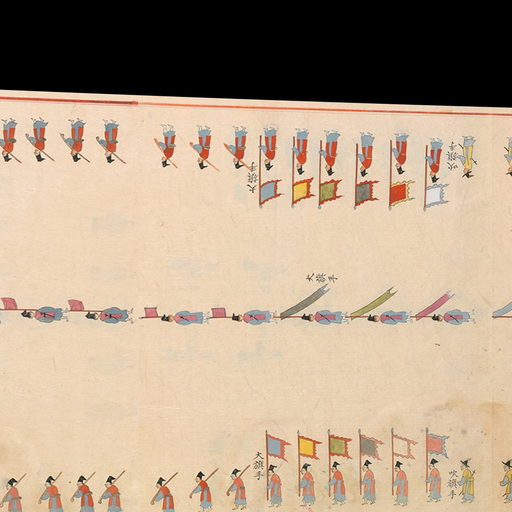 大旗手
吹鼓手
大旗手
大旗手
吹鼓手